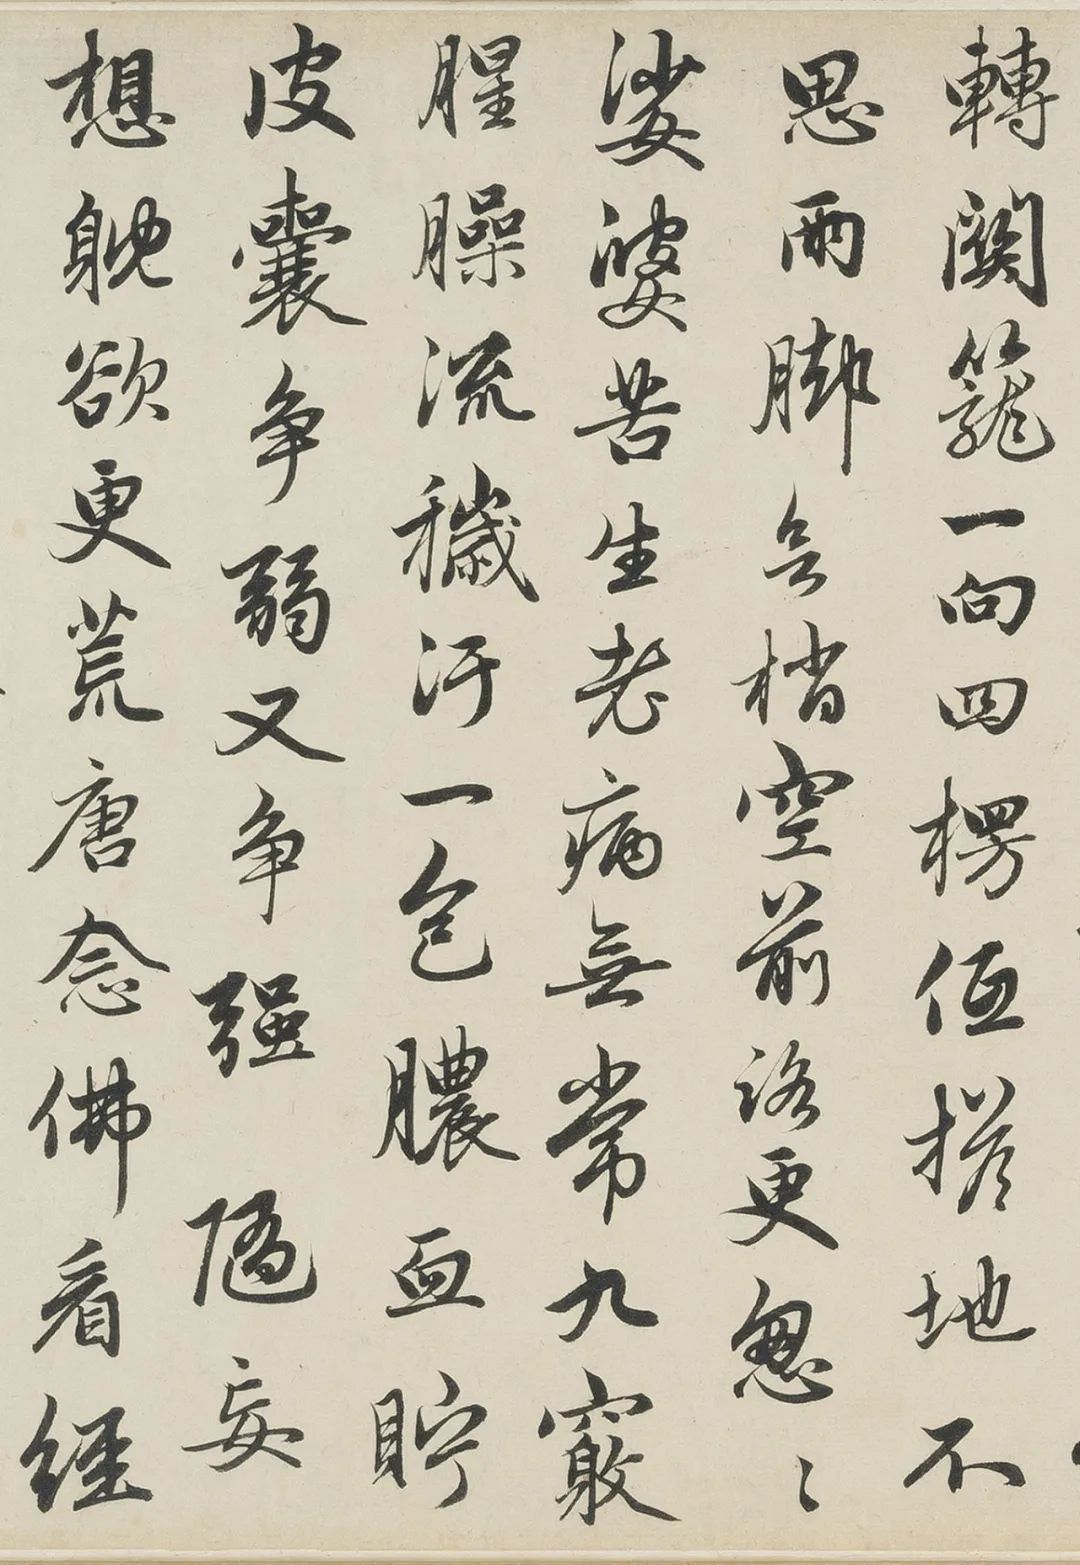 轉關籠一向四楞低搭地不
思兩脚梢空前路更怱〻
娑婆苦生老病無常九竅
腥臊流穢汙一包膿血貯
皮囊争弱又争强隨妄
想躭欲更荒唐念佛看經